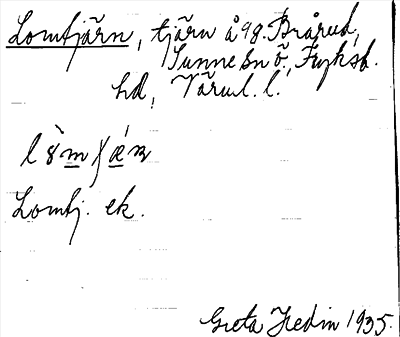 Lomtjärn, tjärn å 98. Brårud,
Sunne sn ö., Fryksd.
hd, Värml. l.
Lomtj. ek.
Greta Hedin 1935.